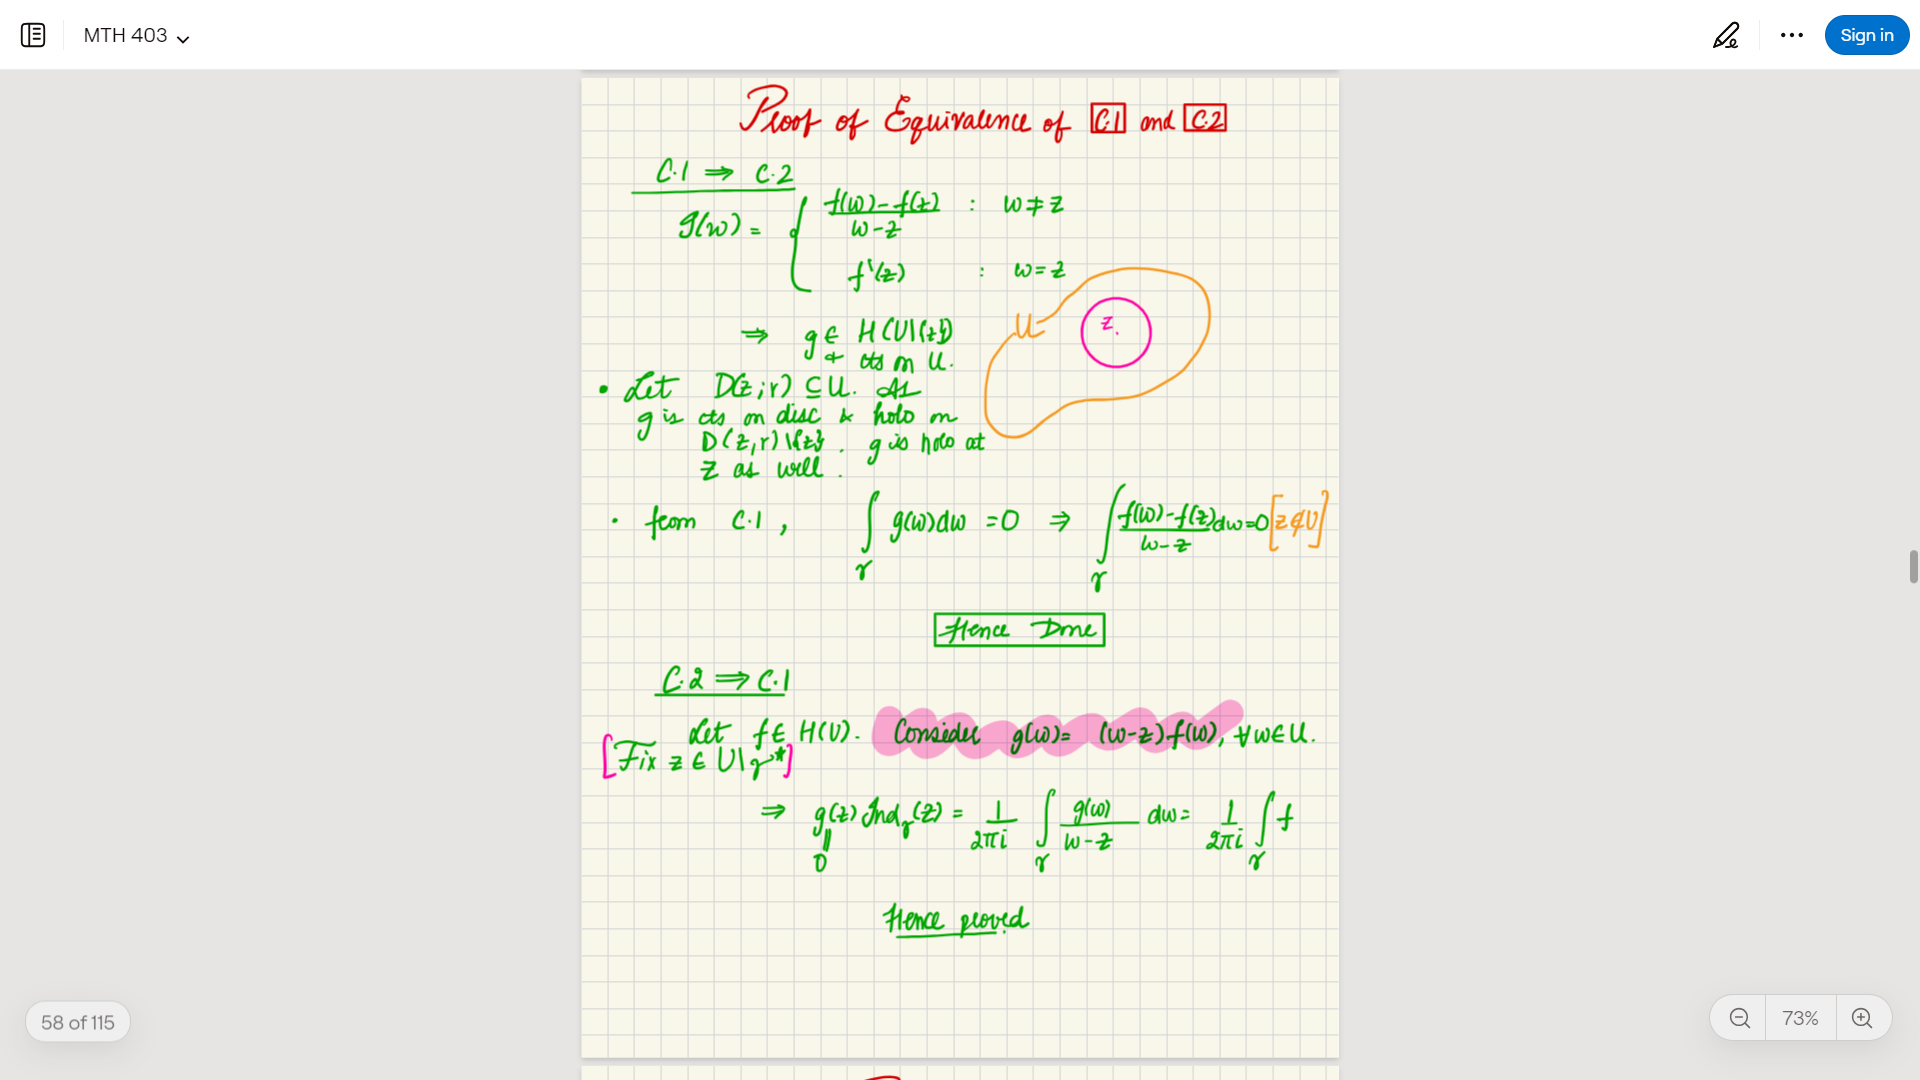 MTH 403
Sign in
Proof of Equivalence of C.1 and C.2
C.1 ⇒ C.2
g(w) = { f(w) - f(z) / w - z : w ≠ z
f'(z) : w = z
⇒ g ∈ H(U\{z})
+ cts on U.
U
z.
• Let D(z;r) ⊆ U. As
g is cts on disc & holo on
D(z,r)\{z}. g is holo at
z as well.
• from C.1, ∫γ g(w)dw = 0 ⇒ ∫γ f(w) - f(z) / w - z dw = 0 [z ∉ U]
Hence Done
C.2 ⇒ C.1
Let f ∈ H(U). Consider g(w) = (w-z)f(w), ∀ w ∈ U.
[Fix z ∈ U\γ*]
⇒ g(z) Indγ(z) = 1/2πi ∫γ g(w) / w - z dw = 1/2πi ∫γ f
||
0
Hence proved.
58 of 115
73%